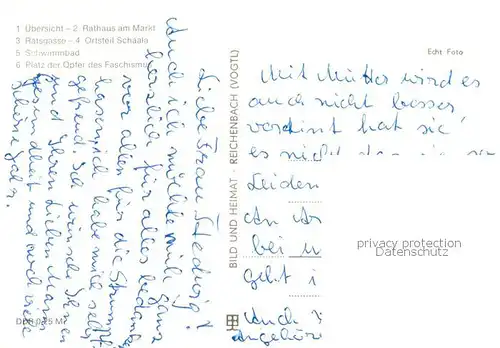 1 Übersicht – 2 Rathaus am Markt
3 Ratsgasse – 4 Ortsteil Schaala
5 Schwimmbad
6 Platz der Opfer des Faschismus
Echt Foto
Liebe Frau Hedwig!
Auch ich möchte mich ganz
herzlich für alles bedanken
vor allen für die Strumpf
hosen, ich habe mich sehr
gefreut. Ich wünsche Ihnen
und Ihren lieben Mann
Gesundheit und noch viele
schöne Jahre.
BILD UND HEIMAT · REICHENBACH (VOGTL)
Mit Mutter wird es
auch nicht besser
verdint hat sie
es nicht
Leiden
An
bei
geht
Auch
angehör
DDR 0,25 M
privacy protection
Datenschutz